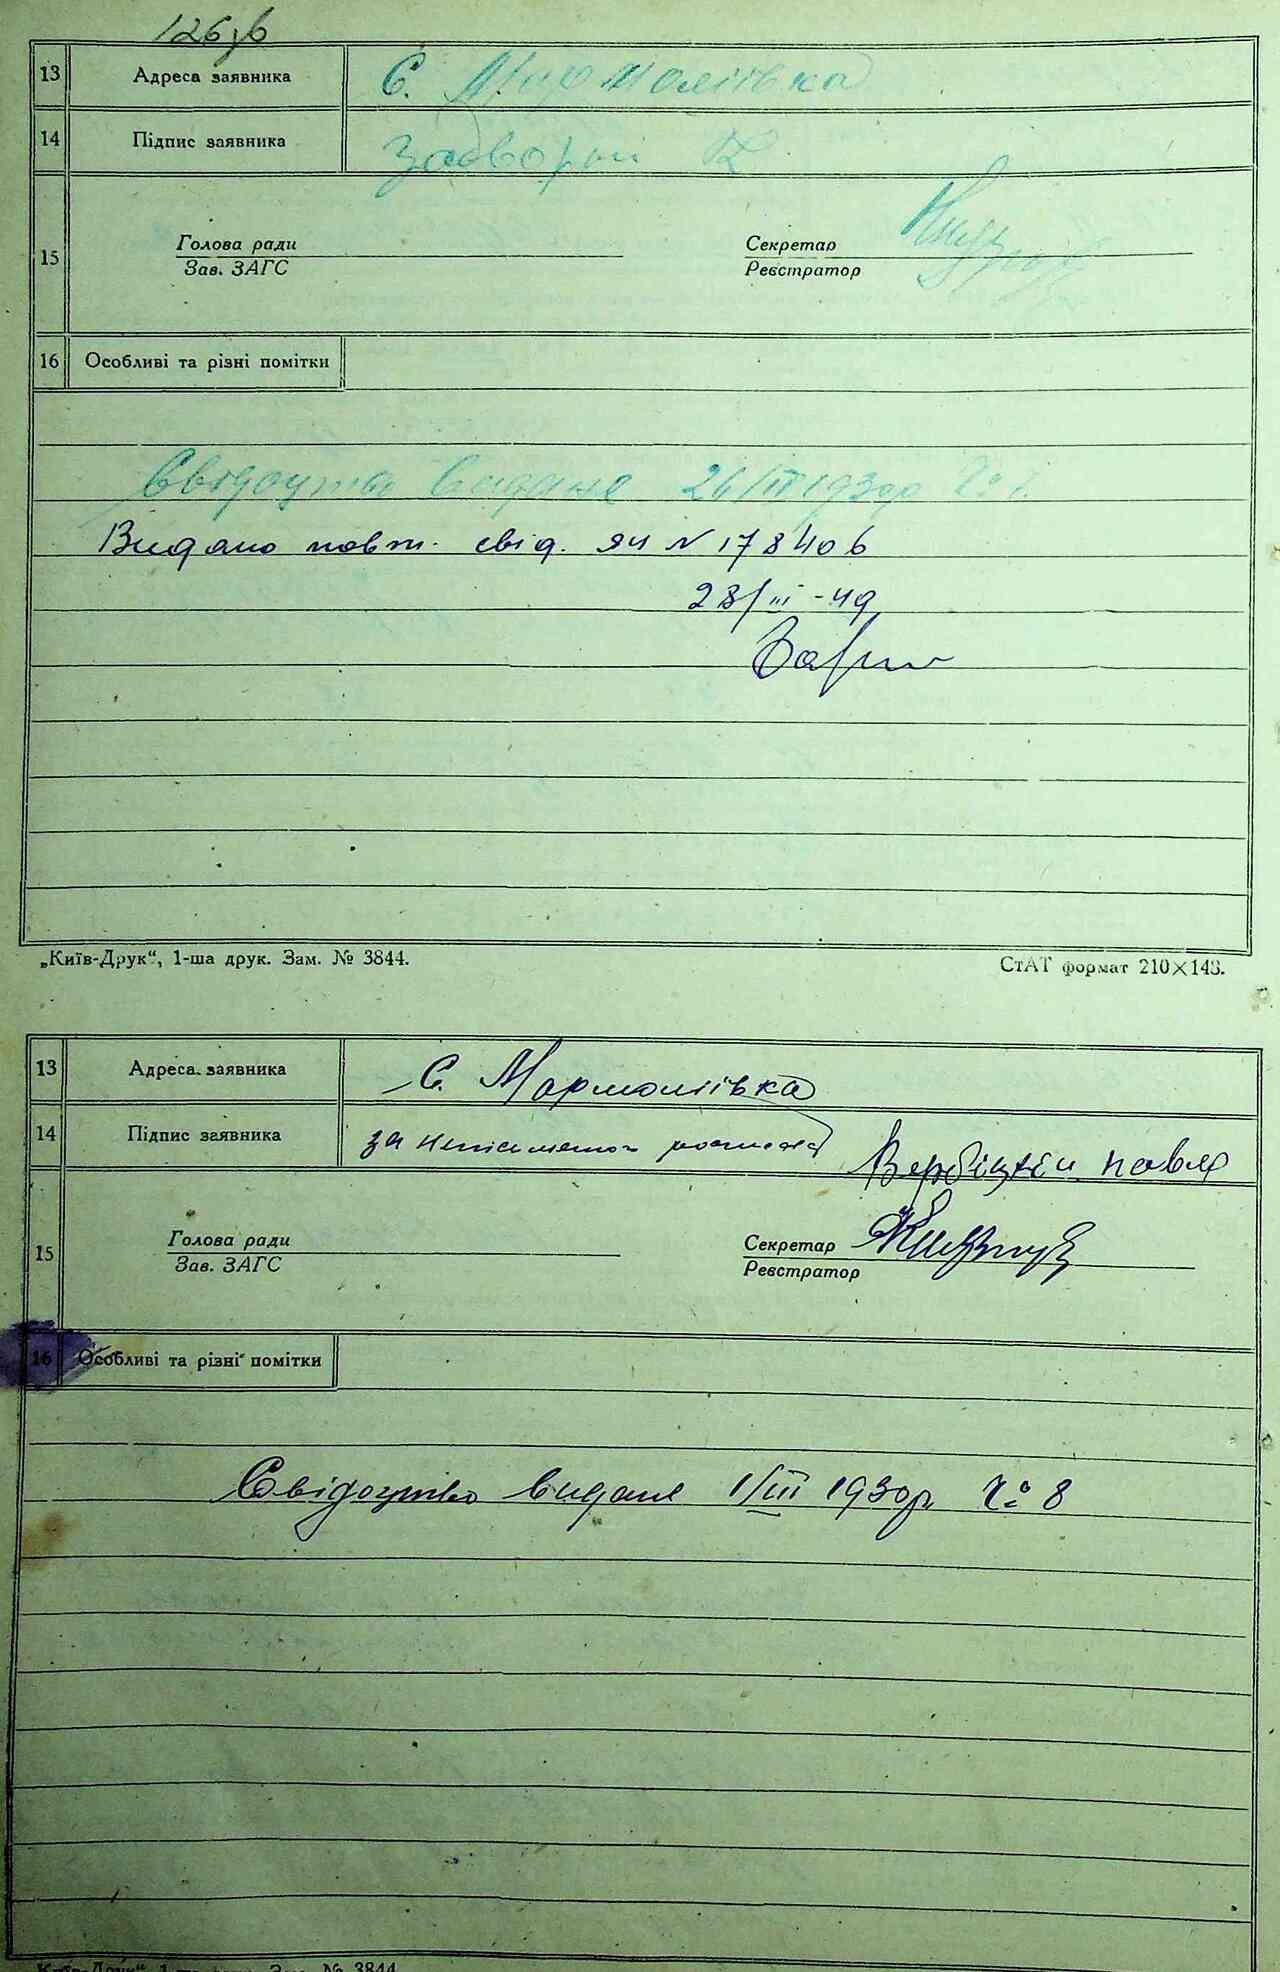 126зв
13 Адреса заявника С. Мармоліївка
14 Підпис заявника
15 Голова ради Секретар
Зав. ЗАГС Реєстратор
16 Особливі та різні помітки
Свідоцтво видане 1930р №
Видано повт. свід. ЯЧ N 178406
28/III-49
„Київ-Друк“, 1-ша друк. Зам. № 3844. СтАТ формат 210×148.
13 Адреса заявника С. Мармоліївка
14 Підпис заявника за Вербіцкій Павло
15 Голова ради Секретар
Зав. ЗАГС Реєстратор
16 Особливі та різні помітки
Свідоцтво видане 1/III 1930р. № 8
„Київ-Друк“, 1-ша друк. Зам. № 3844